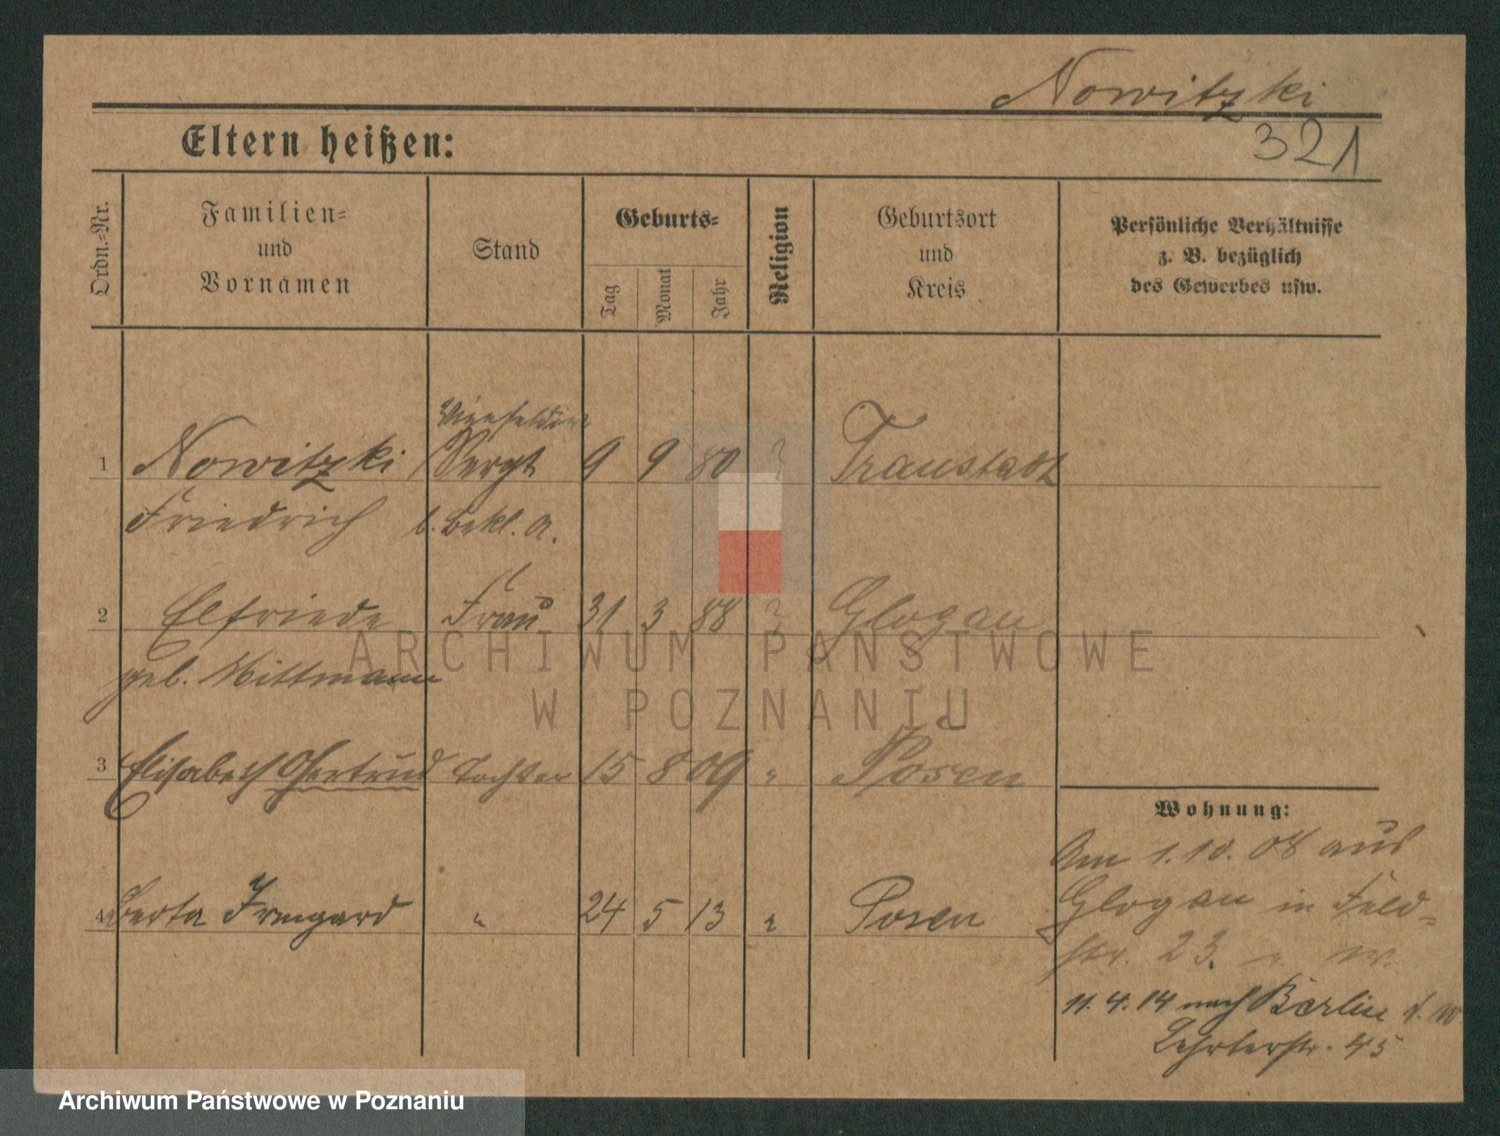 Nowitzki
321
Eltern heißen:
Ordn.-Nr.
Familien-
und
Vornamen
Stand
Geburts-
Tag
Monat
Jahr
Religion
Geburtsort
und
Kreis
Persönliche Verhältnisse
z. B. bezüglich
des Gewerbes usw.
1 Nowitzki Sergt 9 9 80 ? Fraustadt
Friedrich b. Bekl. A.
2 Elfriede Frau 31 3 88 ? Glogau
geb. Mittmann
ARCHIWUM PAŃSTWOWE
W POZNANIU
3 Elisabeth Gertrud Tochter 15 8 09 " Posen
Wohnung:
Am 1.10.08 aus
4 Berta Irmgard " 24 5 13 " Posen
Glogau in Feld-
str. 23.
11.4.14 nach Berlin
Lehrterstr. 45
Archiwum Państwowe w Poznaniu